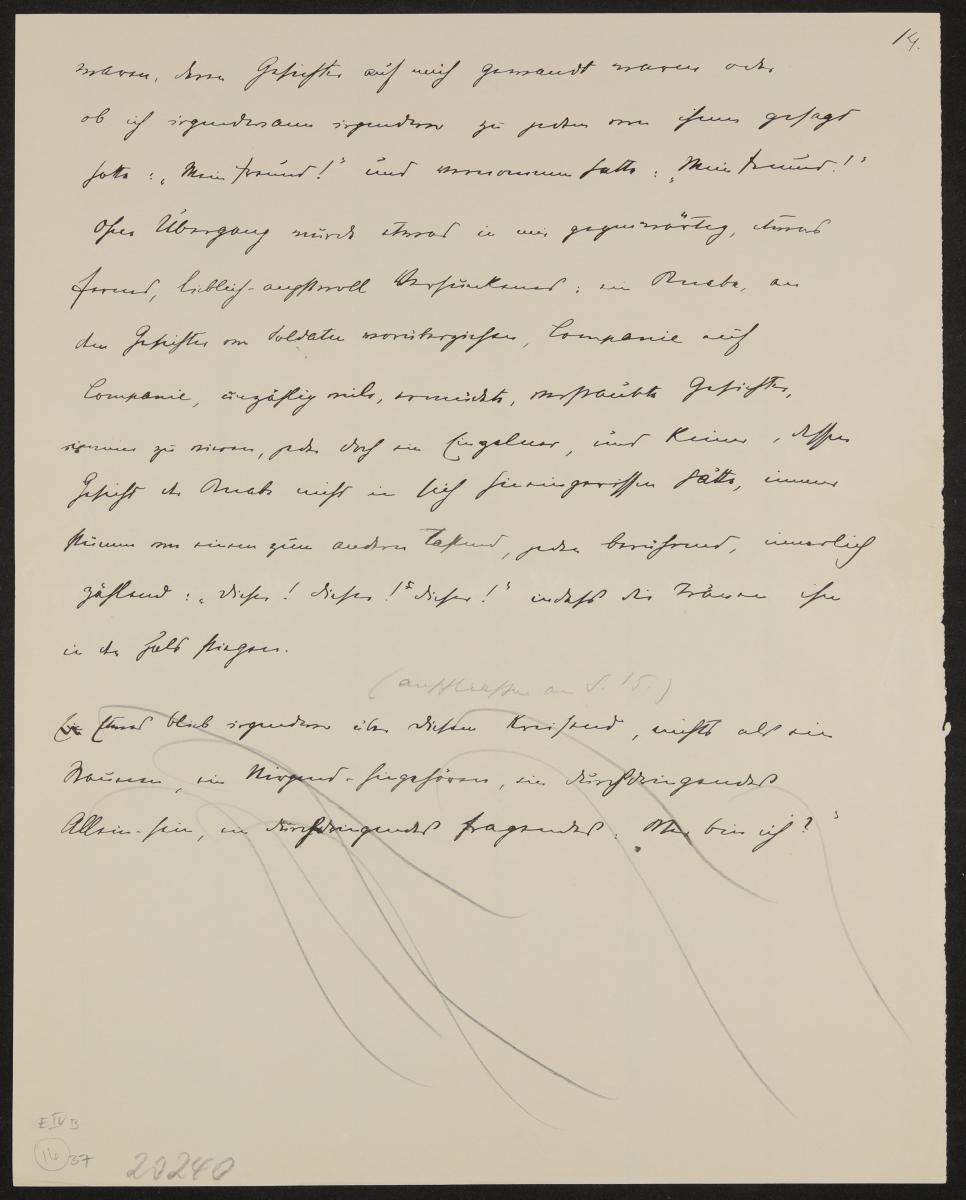 14.
waren, deren Gesichter auf mich gewandt waren oder
ob ich irgendwann irgendwo zu jedem von ihnen gesagt
hatte: „Mein Freund!" und vernommen hatte: „Mein Freund!"
Ohne Übergang wurde etwas in mir gegenwärtig, etwas
fernes, lieblich-angstvoll Versunkenes: ein Knabe, an
dem Gesichter von Soldaten vorüberziehen, Compagnie auf
Compagnie, unzählig viele, ermüdete, verstaubte Gesichter,
immer zu vieren, jeder doch ein Einzelner, und keiner, dessen
Gesicht der Knabe nicht in sich hineingerissen hätte, immer
stumm von einem zum andern tastend, jeden berührend, innerlich
zählend: „dieser! dieser! dieser!" indess die Tränen ihm
in den Hals stiegen.
(anschliessen an S. 15.)
Etwas blieb irgendwo über diesem kreisend, nichts als ein
Staunen, ein Nirgend-hingehören, ein durchdringendes
Allein-sein, ein durchdringendes fragendes: „Wer bin ich?"
E IV B
16 37
20240